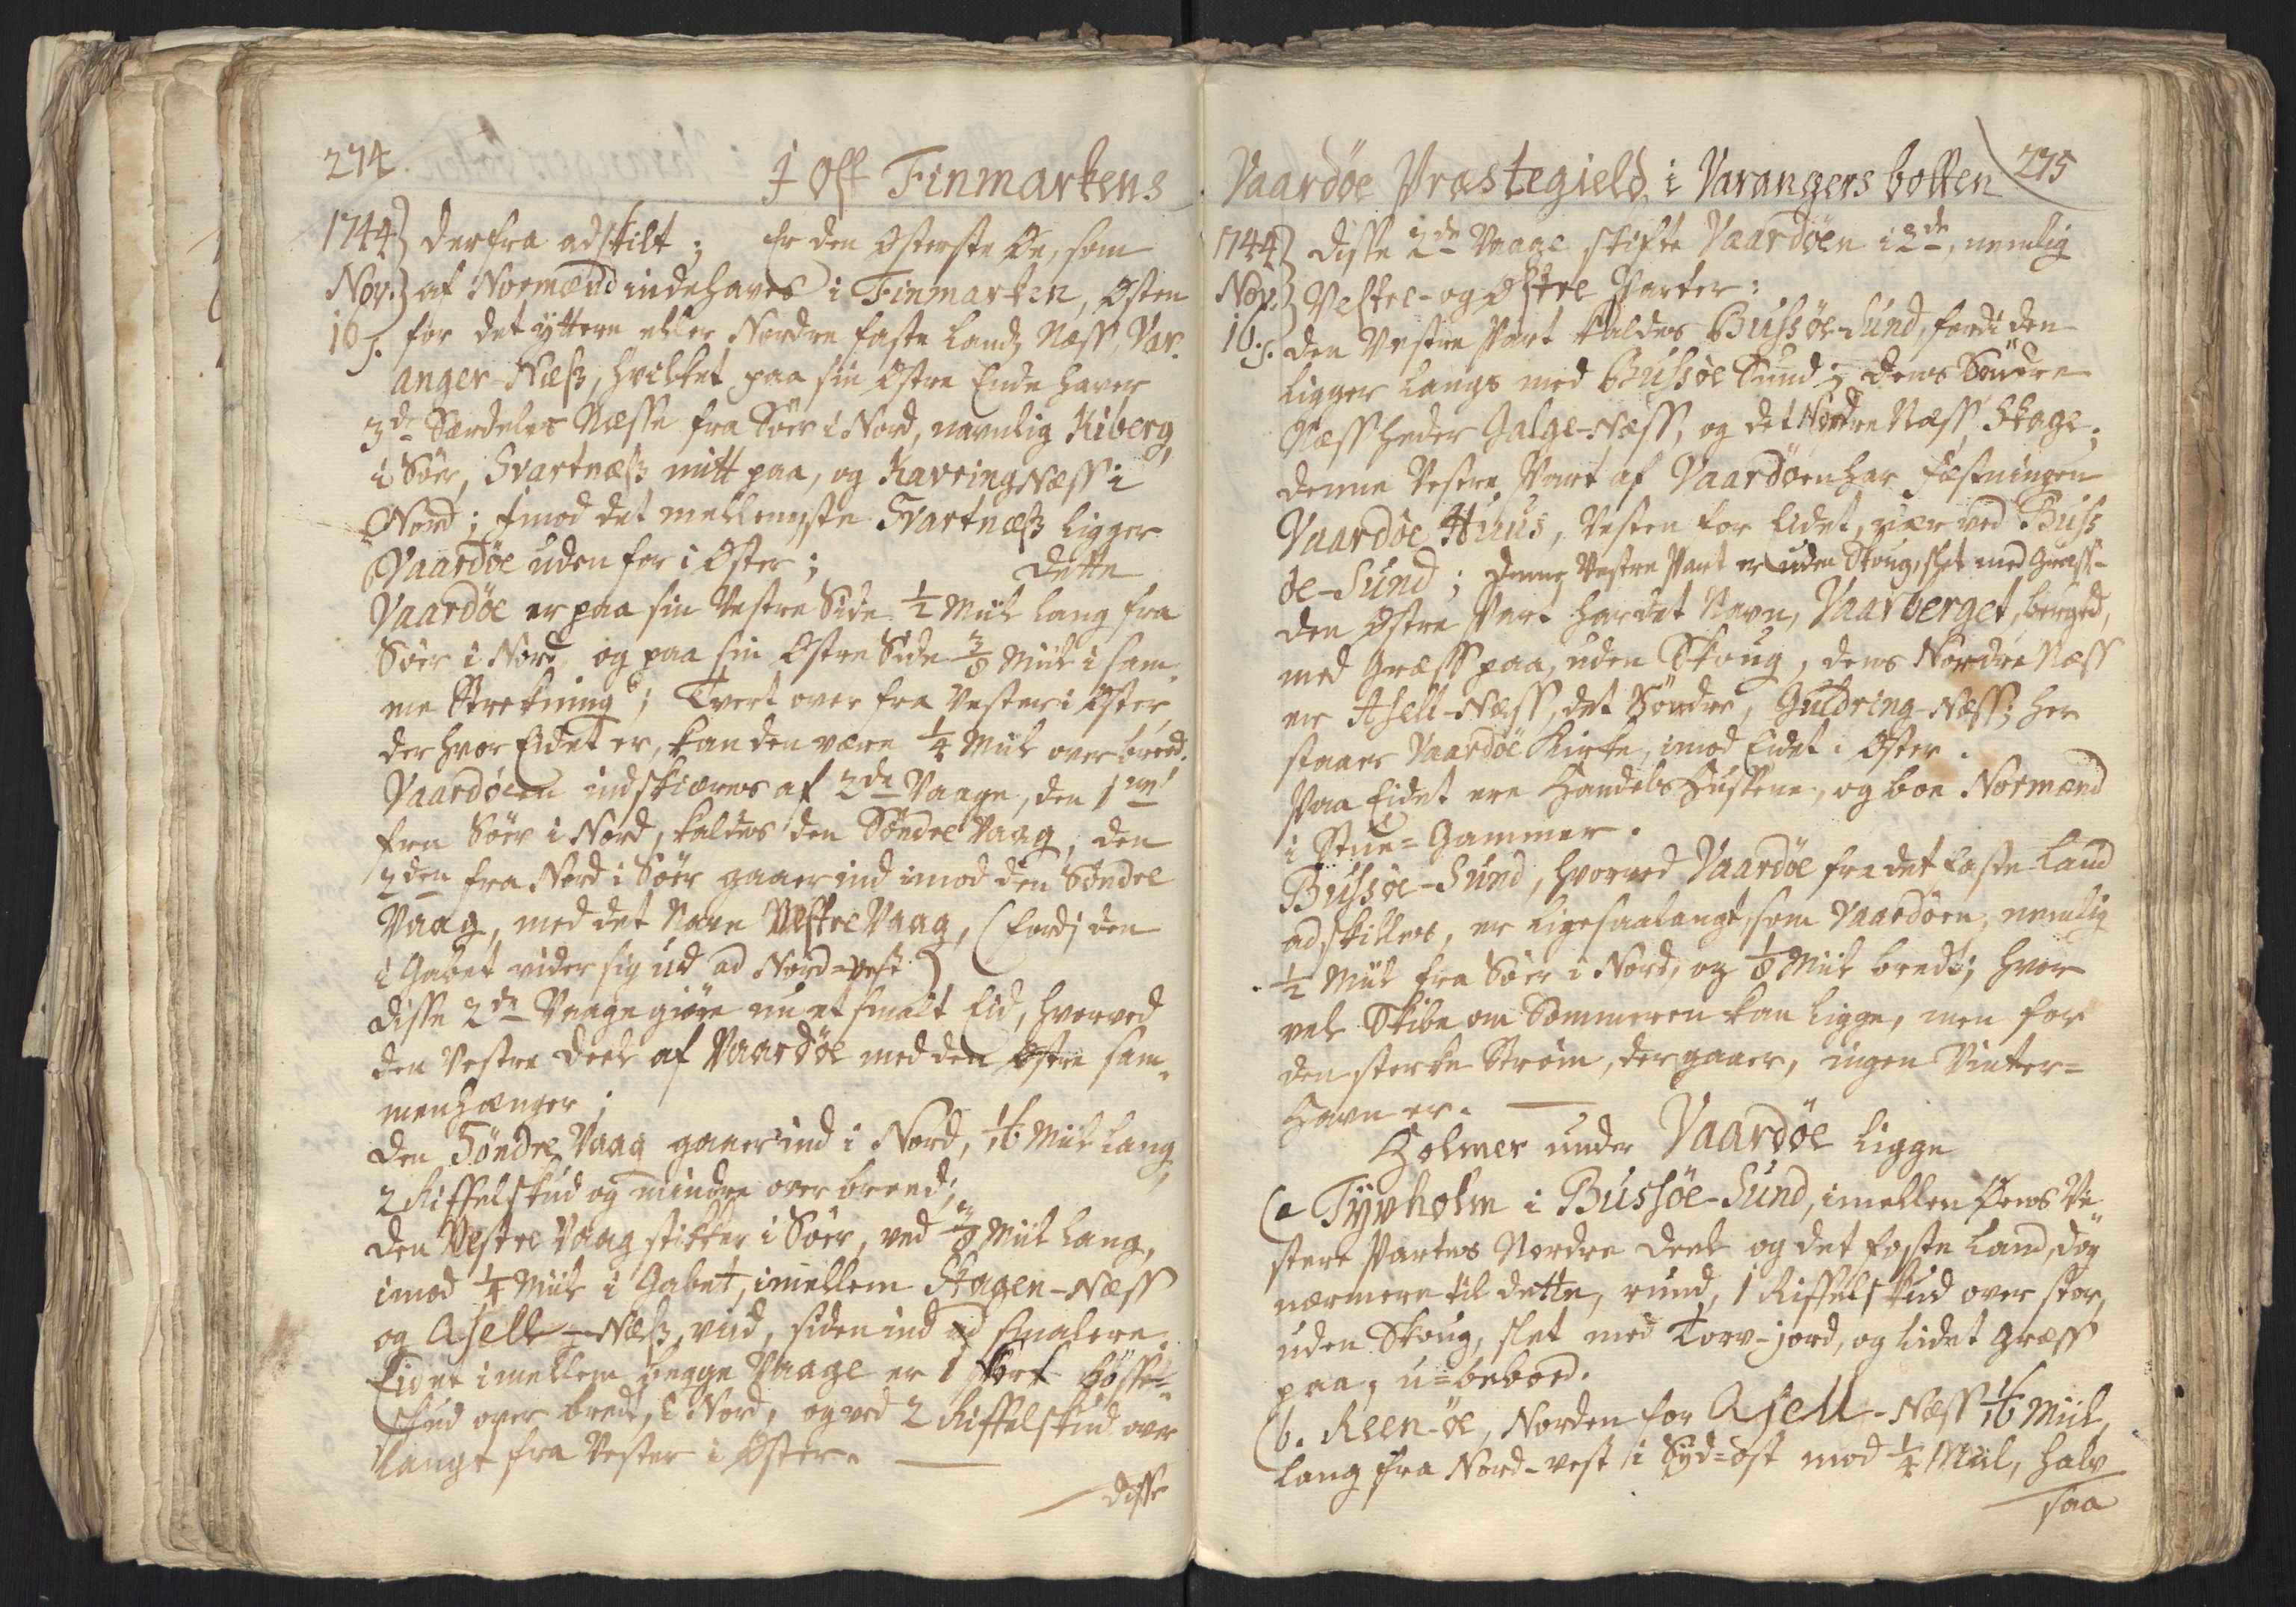 274.
I Øst Finmarkens
1744 } derfra adskilt; Er den Østerste Øe, som
Nov. } af Normænd indehaves i Finmarken, Østen
16 s. for det yttere eller Nordre faste Landz Næss, Var-
anger-Næss, hvilket paa sin Østre Ende haver
3de Særdeles Næsse fra Sør i Nord, navnlig Kiberg
i Sør, Svartnæss mitt paa, og Kavringnæss i
Nord; Imod det mellemste Svartnæss ligger
Vaardöe uden for i Øster; Dette
Vaardöe er paa sin Vestre Side 1/2 Miil lang fra
Sör i Nord, og paa sin Østre Side 3/8 Miil i sam-
me Strekning; Tvert over fra Vester i Øster,
der hvor Eidet er, kan den være 1/4 Miil over breed.
Vaardöen indskiæres af 2de Vaage, den 1ne
fra Sör i Nord, kaldes den Söndre Vaag, den
2den fra Nord i Sör gaaer ind imod den Söndre
Vaag, med det Navn Vestre Vaag, (fordi den
i Gabet vider sig ud ad Nord-vest)
disse 2de Vaage giöre nu et smalt Eid, hvorved
den Vestre Deel af Vaardöe med den Østre sam-
menhænger;
Den Söndre Vaag gaaer ind i Nord, 1/16 Miil lang,
2 Riffelskud og mindre over breed;
Den Vestre Vaag stikker i Sör, ved 3/8 Miil lang,
imod 1/4 Miil i Gabet, imellem Skagen-Næss
og Asell-Næss, viid, siden ind ad smalere.
Eidet imellem begge Vaage er 1 stort Bösse-
skud over bredt, i Nord, og ved 2 Riffelskud over
langt fra Vester i Øster.
disse
Vaardöe Præstegield i Varangersbotten
275
1744 } disse 2de Vaage skifte Vaardöen i 2de, nemlig
Nov. } Vestre- og Østre Parter:
16. s. den Vestre Part kaldes Bussöe-Sund, fordi den
ligger langs med Bussöe Sund; dens Söndre
Næss heder Galge-Næss, og det Nordre Næss, Skage;
denne Vestre Part af Vaardöen har Fæstningen
Vaardöe Huus, Vesten for Eidet, nær ved Buss
öe-Sund; Denne Vestre Part er uden Skoug, slet med Græss-
den Østre Part har det Navn, Vaarberget, berged,
med Græss paa, uden Skoug, dens Nordre Næss
er Asell-Næss, det Söndre, Guldring-Næss; her
staaer Vaardöe Kirke, imod Eidet i Øster.
Paa Eidet ere Handels Hussene, og boe Normænd
i Stue-Gammer.
Bussöe-Sund, hvorved Vaardöe fra det faste Land
adskilles, er ligesaa langt, som Vaardöen, nemlig
1/2 Miil fra Sör i Nord, og 1/8 Miil bredt; hvor
vel Skibe om Sommeren kan ligge, men for
den sterke Ström, der gaaer, ingen Vinter-
Havn er.
Holmer under Vaardöe ligge
(a Tyvholm i Bussöe-Sund, imellem Øens Ve-
stere Partes Nordre Deel og det faste Land, dog
nærmere til dette, rund, 1 Riffelskud over stor,
uden Skoug, slet med Torv-jord, og lidet Græss
paa, u-beboed.
(b. Reen-öe, Norden for Asell-Næss 1/16 Miil,
lang fra Nord-vest i Syd-ost mod 1/4 Miil, halv
saa